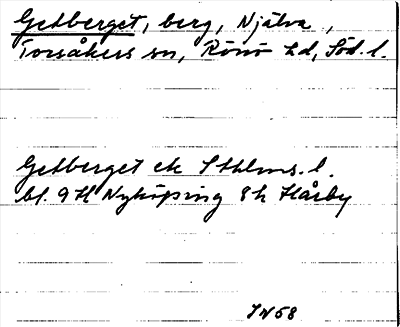 Getberget, berg, Njälva,
Torsåkers sn, Rönö hd, Söd. l.
Getberget ek Sthlms. l.
bl. 9 H Nyköping 8 h Hårby
IN 58